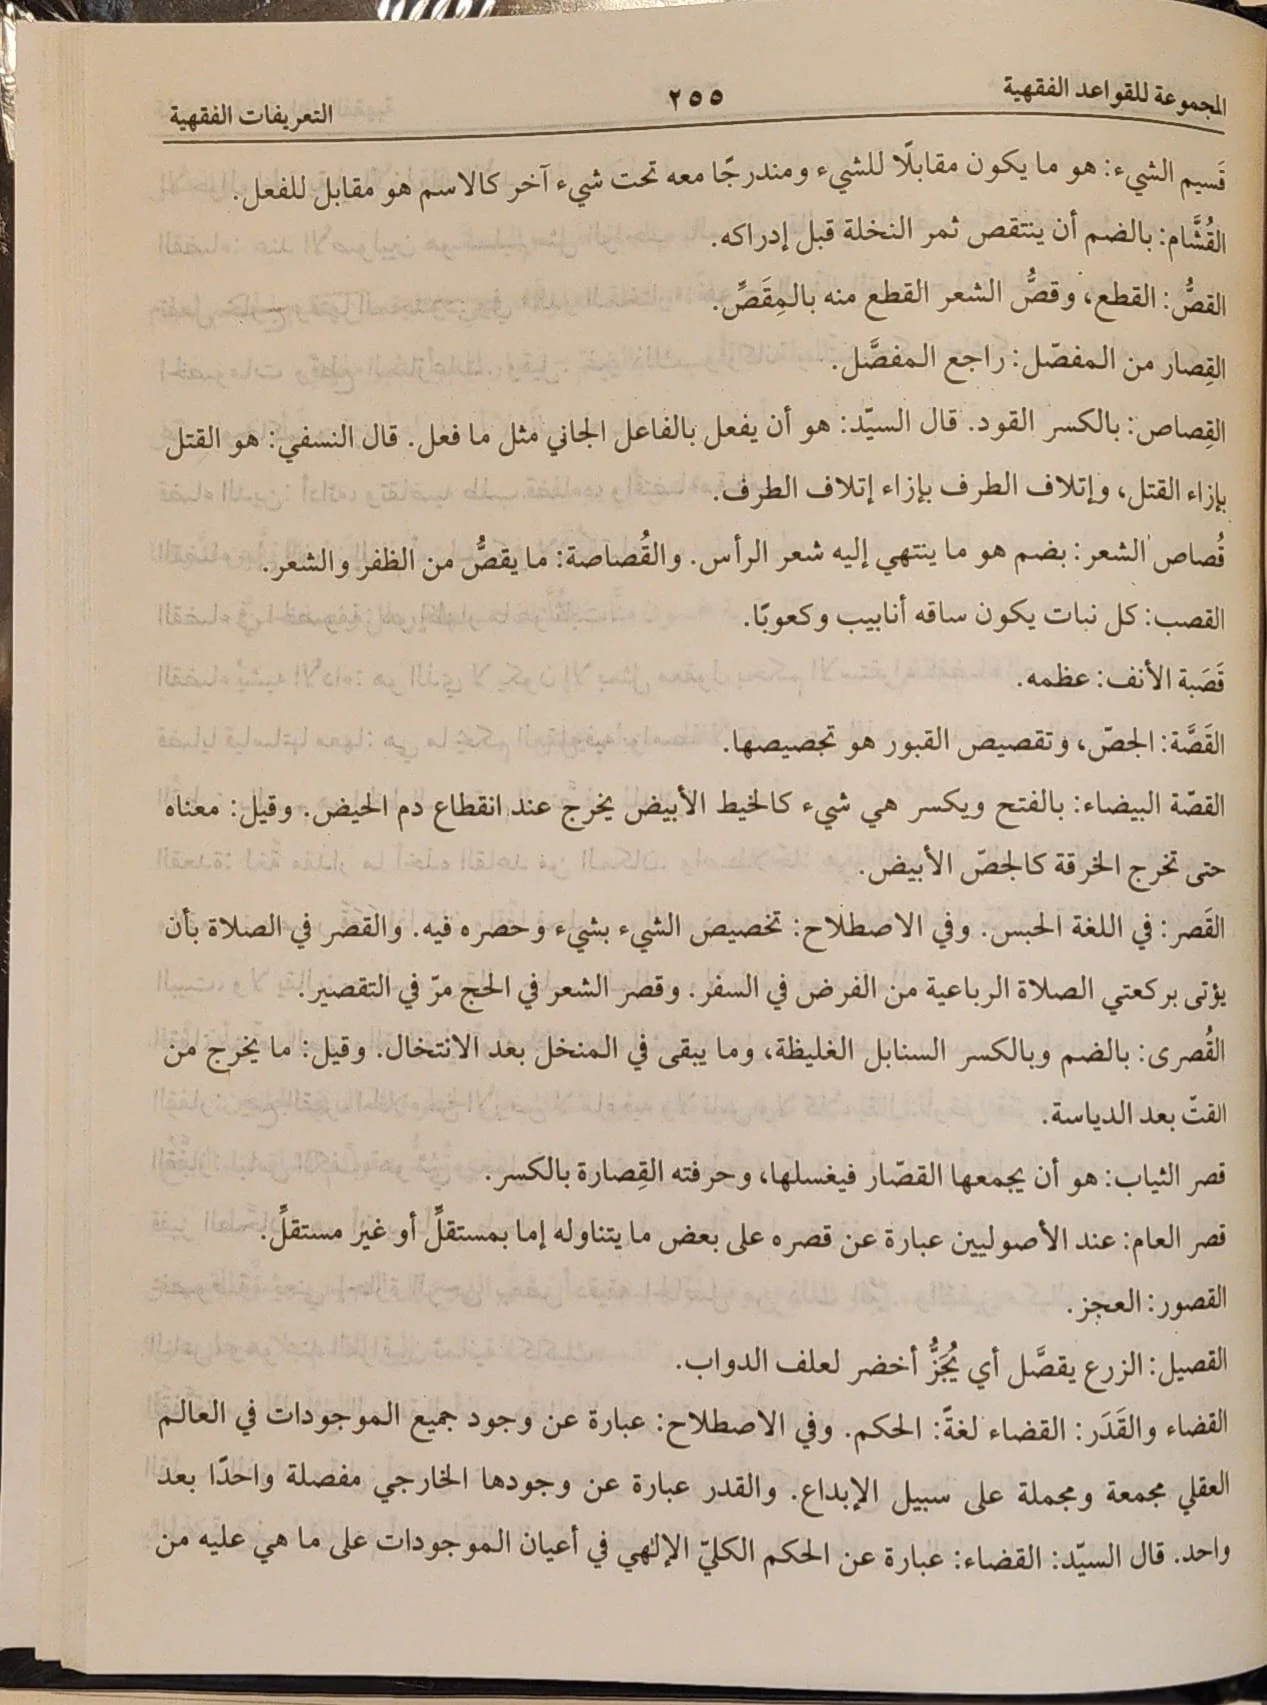 المجموعة للقواعد الفقهية ٢٥٥ التعريفات الفقهية
قَسيم الشيء: هو ما يكون مقابلًا للشيء ومندرجًا معه تحت شيء آخر كالاسم هو مقابل للفعل.
القُشَّام: بالضم أن ينتقص ثمر النخلة قبل إدراكه.
القصُّ: القطع، وقصُّ الشعر القطع منه بالمِقَصِّ.
القِصار من المفصّل: راجع المفصَّل.
القِصاص: بالكسر القود. قال السيّد: هو أن يفعل بالفاعل الجاني مثل ما فعل. قال النسفي: هو القتل
بإزاء القتل، وإتلاف الطرف بإزاء إتلاف الطرف.
قُصاص الشعر: بضم هو ما ينتهي إليه شعر الرأس. والقُصاصة: ما يقصُّ من الظفر والشعر.
القصب: كل نبات يكون ساقه أنابيب وكعوبًا.
قَصَبة الأنف: عظمه.
القَصَّة: الجصّ، وتقصيص القبور هو تجصيصها.
القصّة البيضاء: بالفتح ويكسر هي شيء كالخيط الأبيض يخرج عند انقطاع دم الحيض. وقيل: معناه
حتى تخرج الخرقة كالجصّ الأبيض.
القَصر: في اللغة الحبس. وفي الاصطلاح: تخصيص الشيء بشيء وحصره فيه. والقصر في الصلاة بأن
يؤتى بركعتي الصلاة الرباعية من الفرض في السفر. وقصر الشعر في الحج مرّ في التقصير.
القُصرى: بالضم وبالكسر السنابل الغليظة، وما يبقى في المنخل بعد الانتخال. وقيل: ما يخرج من
القتّ بعد الدياسة.
قصر الثياب: هو أن يجمعها القصّار فيغسلها، وحرفته القِصارة بالكسر.
قصر العام: عند الأصوليين عبارة عن قصره على بعض ما يتناوله إما بمستقلٍّ أو غير مستقلٍّ.
القصور: العجز.
القصيل: الزرع يقصَّل أي يُجَزُّ أخضر لعلف الدواب.
القضاء والقَدَر: القضاء لغةً: الحكم. وفي الاصطلاح: عبارة عن وجود جميع الموجودات في العالم
العقلي مجمعة ومجملة على سبيل الإبداع. والقدر عبارة عن وجودها الخارجي مفصلة واحدًا بعد
واحد. قال السيّد: القضاء: عبارة عن الحكم الكليّ الإلهي في أعيان الموجودات على ما هي عليه من